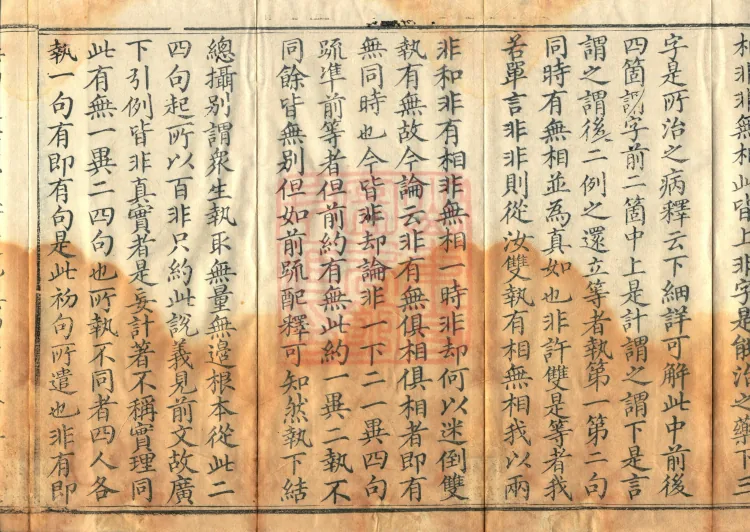 相非非無相此皆上非字是能治之藥下三
字是所治之病釋云下細詳可解此中前後
四箇謂字前二箇中上是計謂之謂下是言
謂之謂後二例之還立等者執第一第二句
同時有無相並為真如也非許雙是等者我
若單言非非則從汝雙執有相無相我以兩
非和非有相非無相一時非却何以迷倒雙
執有無故今論云非有無俱相俱相者即有
無同時也今皆非却論非一下二一異四句
䟽準前等者但前約有無此約一異二執不
同餘皆無別但如前䟽配釋可知然執下結
總攝別謂衆生執取無量無邉根本從此二
四句起所以百非只約此說義見前文故廣
下引例皆非真實者是妄計著不稱實理同
此有無一異二四句也所執不同者四人各
執一句有即有句是此初句所遣也非有即